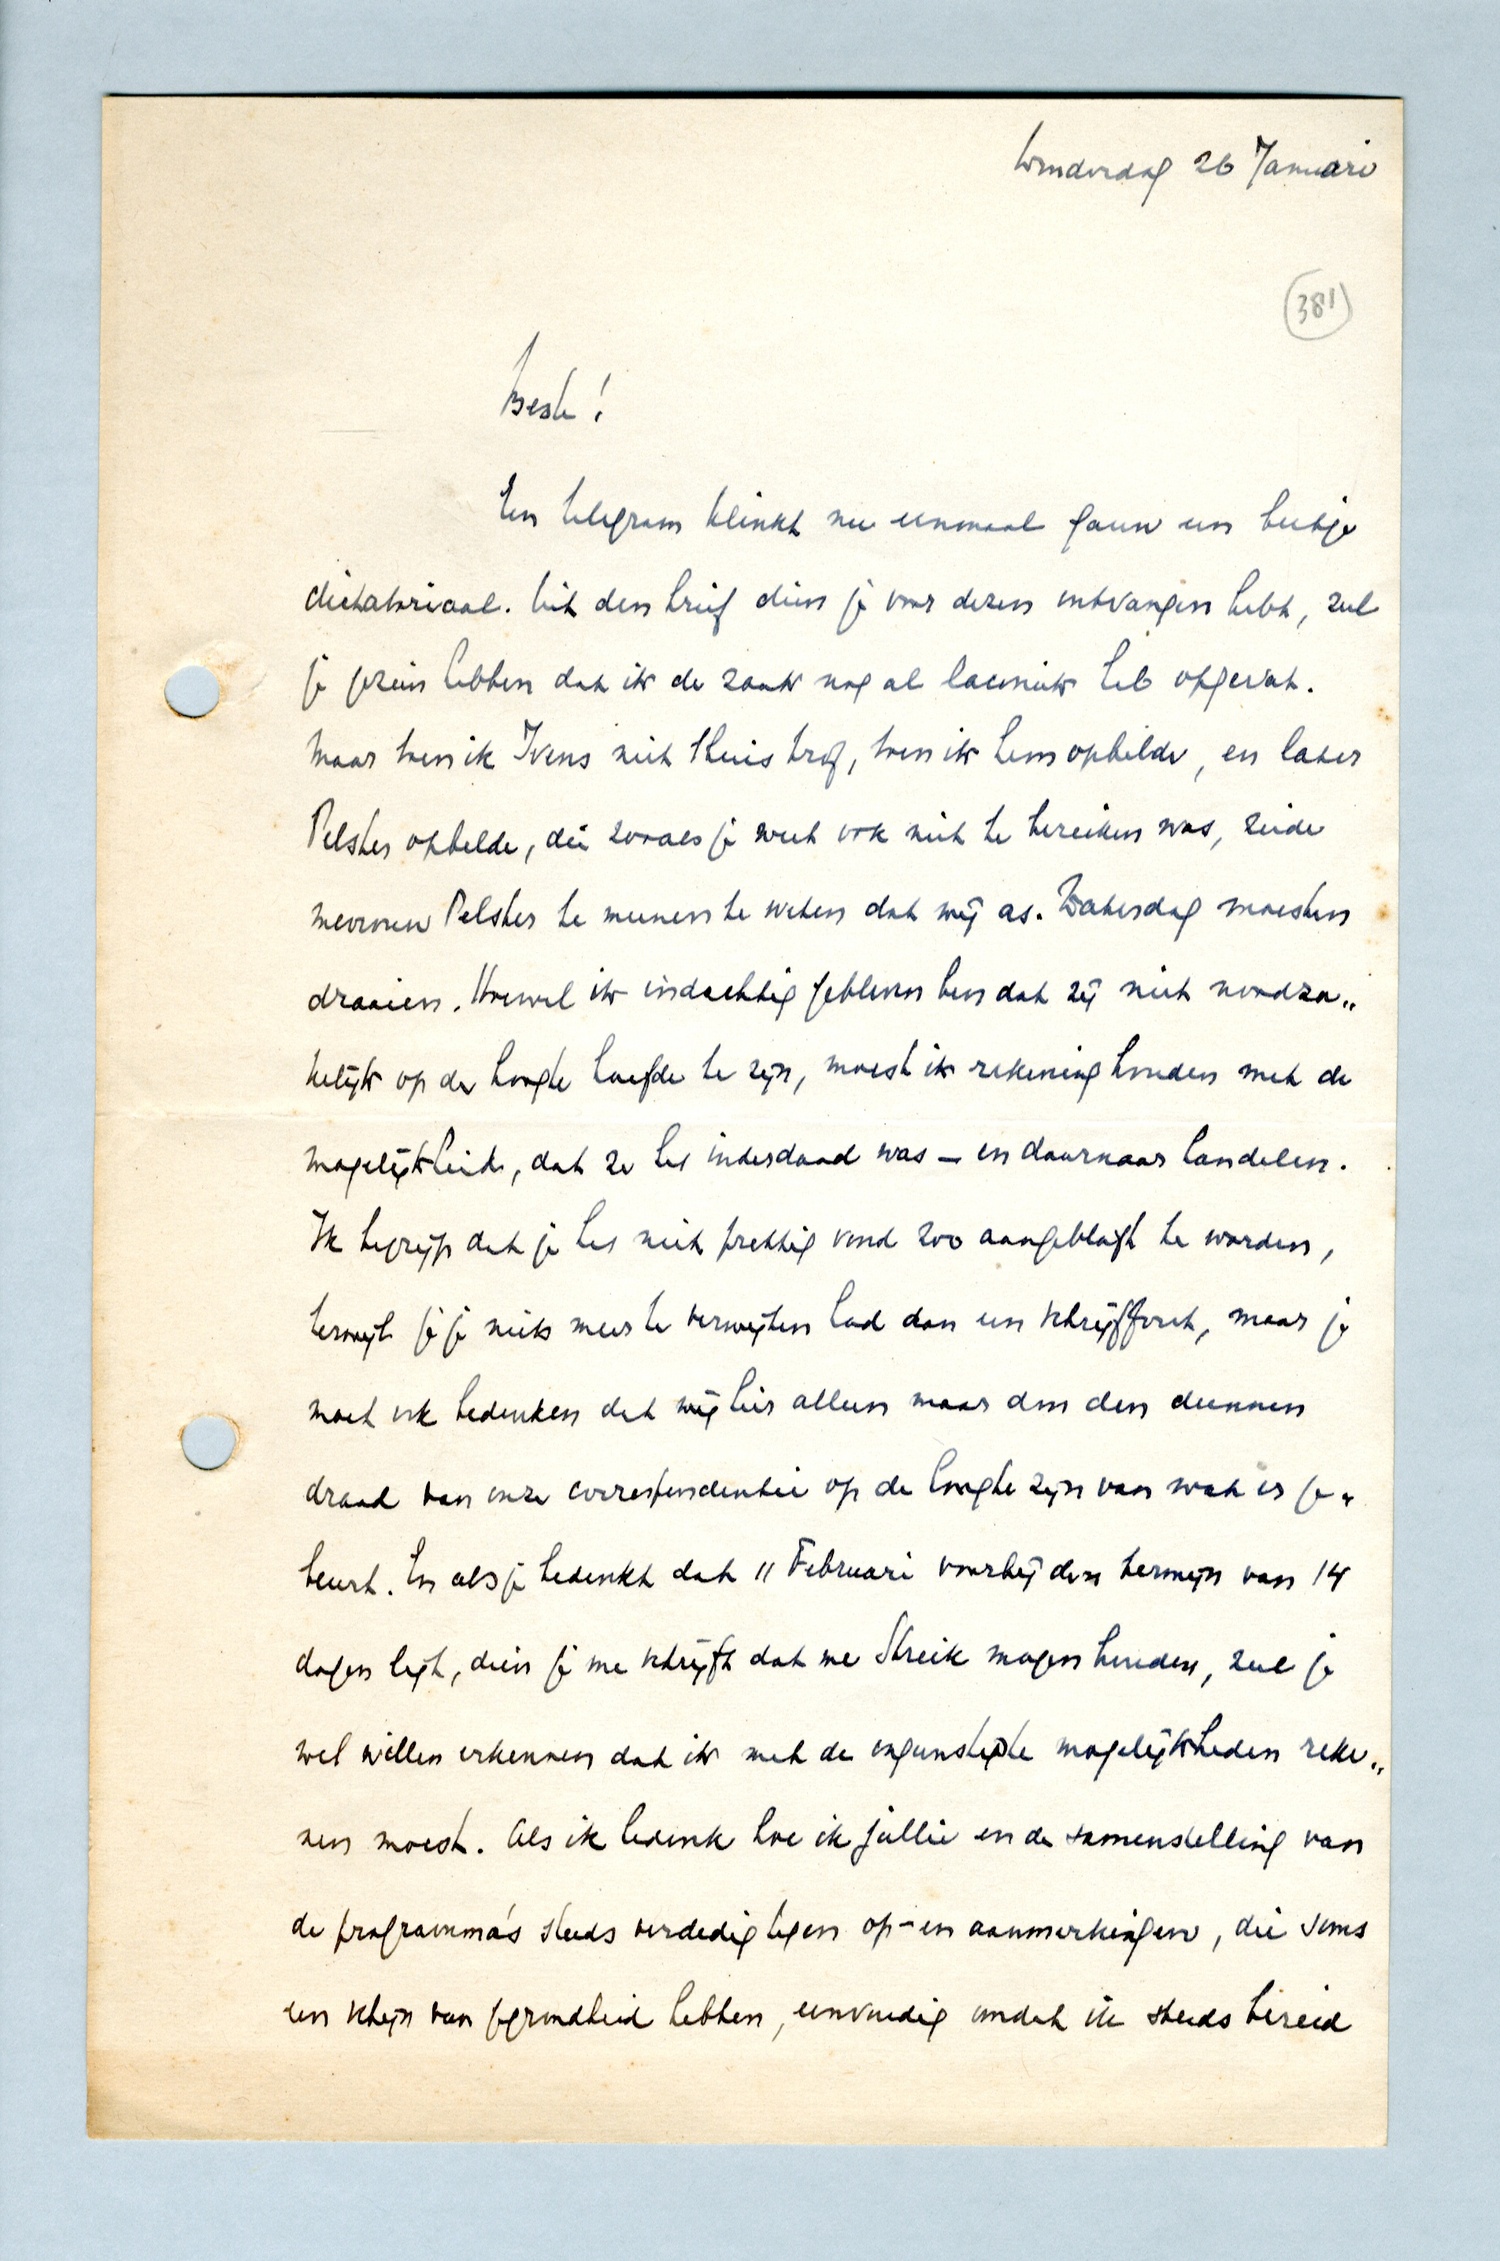 Donderdag 26 Januari
381
Beste!
Een telegram klinkt nu eenmaal gauw een beetje
dictatoriaal. Uit den brief dien je voor dezen ontvangen hebt, zul
je gezien hebben dat ik de zaak nog al laconiek heb opgevat.
Maar toen ik Ivens niet thuis trof, toen ik hem opbelde, en later
Pelster opbelde, die zooals je weet ook niet te bereiken was, zeide
mevrouw Pelster te meenen te weten dat wij as. Zaterdag moesten
draaien. Hoewel ik indachtig gebleven ben dat zij niet noodza„
kelijk op de hoogte hoefde te zijn, moest ik rekening houden met de
mogelijkheid, dat ze het inderdaad was – en daarnaar handelen.
Ik begrijp dat je het niet prettig vond zoo aangeblaft te worden,
terwijl je je niets meer te verwijten had dan een schrijffout, maar je
moet ook bedenken dat wij hier alleen maar door den dunnen
draad van onze correspondentie op de hoogte zijn van wat er ge„
beurt. En als je bedenkt dat 11 Februari voorbij den termijn van 14
dagen ligt, dien je me schrijft dat we Streik mogen houden, zul je
wel willen erkennen dat ik met de ongunstigste mogelijkheden reke„
nen moest. Als ik bedenk hoe ik jullie en de samenstelling van
de programma's steeds verdedig tegen op- en aanmerkingen, die soms
een schijn van gegrondheid hebben, eenvoudig omdat ik steeds bereid